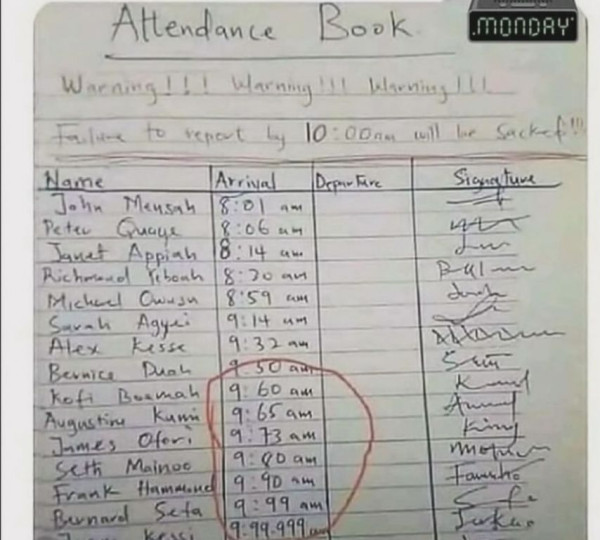 .MONDAY
Attendance Book.
Warning!!! Warning!!! Warning!!!
Failure to report by 10:00am will be sacked!!!
Name Arrival Departure Signature
John Mensah 8:01 am
Peter Quaye 8:06 am
Janet Appiah 8:14 am
Richmond Yeboah 8:20 am
Michael Owusu 8:59 am
Sarah Agyei 9:14 am
Alex Kesse 9:32 am
Bernice Duah 9:50 am
Kofi Boamah 9:60 am
Augustine Kumi 9:65 am
James Ofori 9:73 am
Seth Mainoo 9:80 am
Frank Hammond 9:90 am
Bernard Sefa 9:99 am
Kessi 9:99.999 am